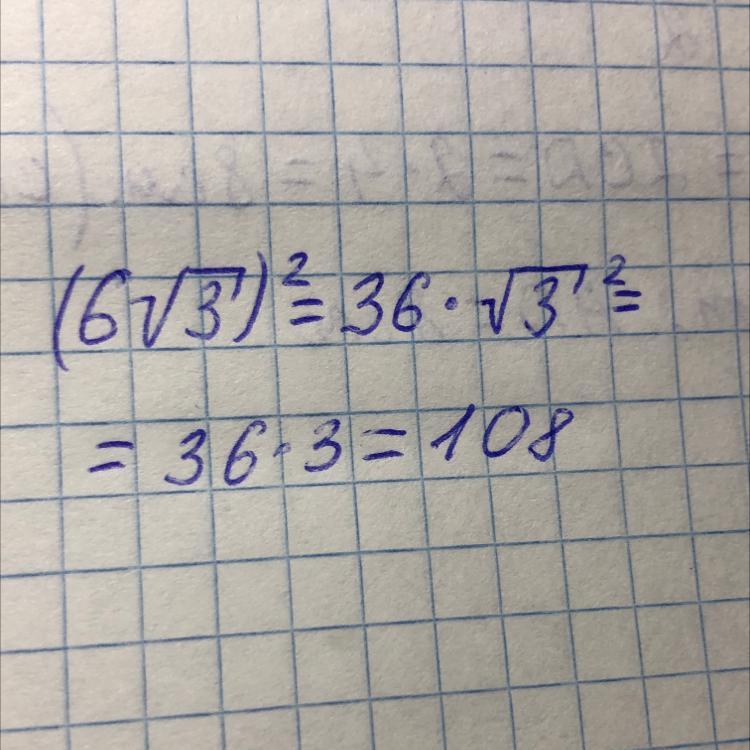 (6√3)² = 36·√3² =
= 36·3 = 108